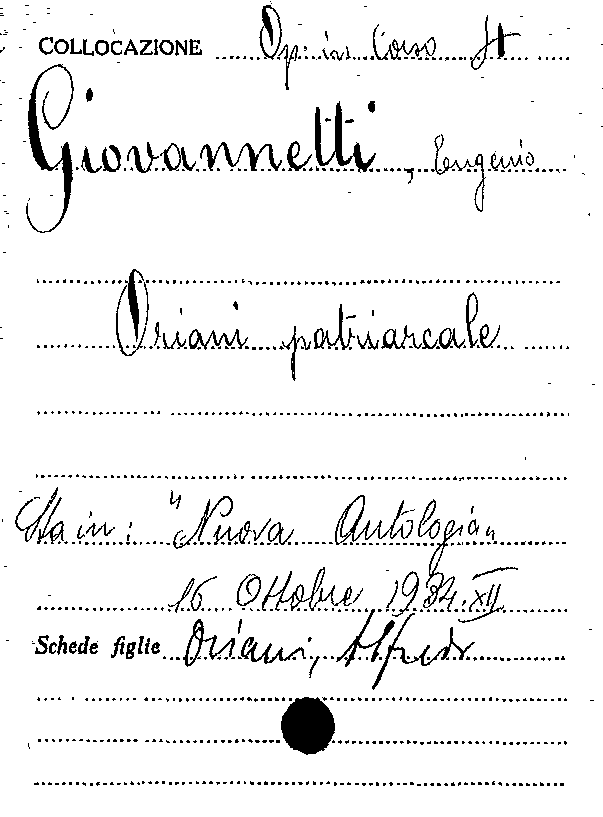 COLLOCAZIONE Op. in Corso St
Giovannetti, Eugenio
Oriani patriarcale
Sta in: "Nuova Antologia"
16 Ottobre 1934.XII
Schede figlie Oriani, Alfredo